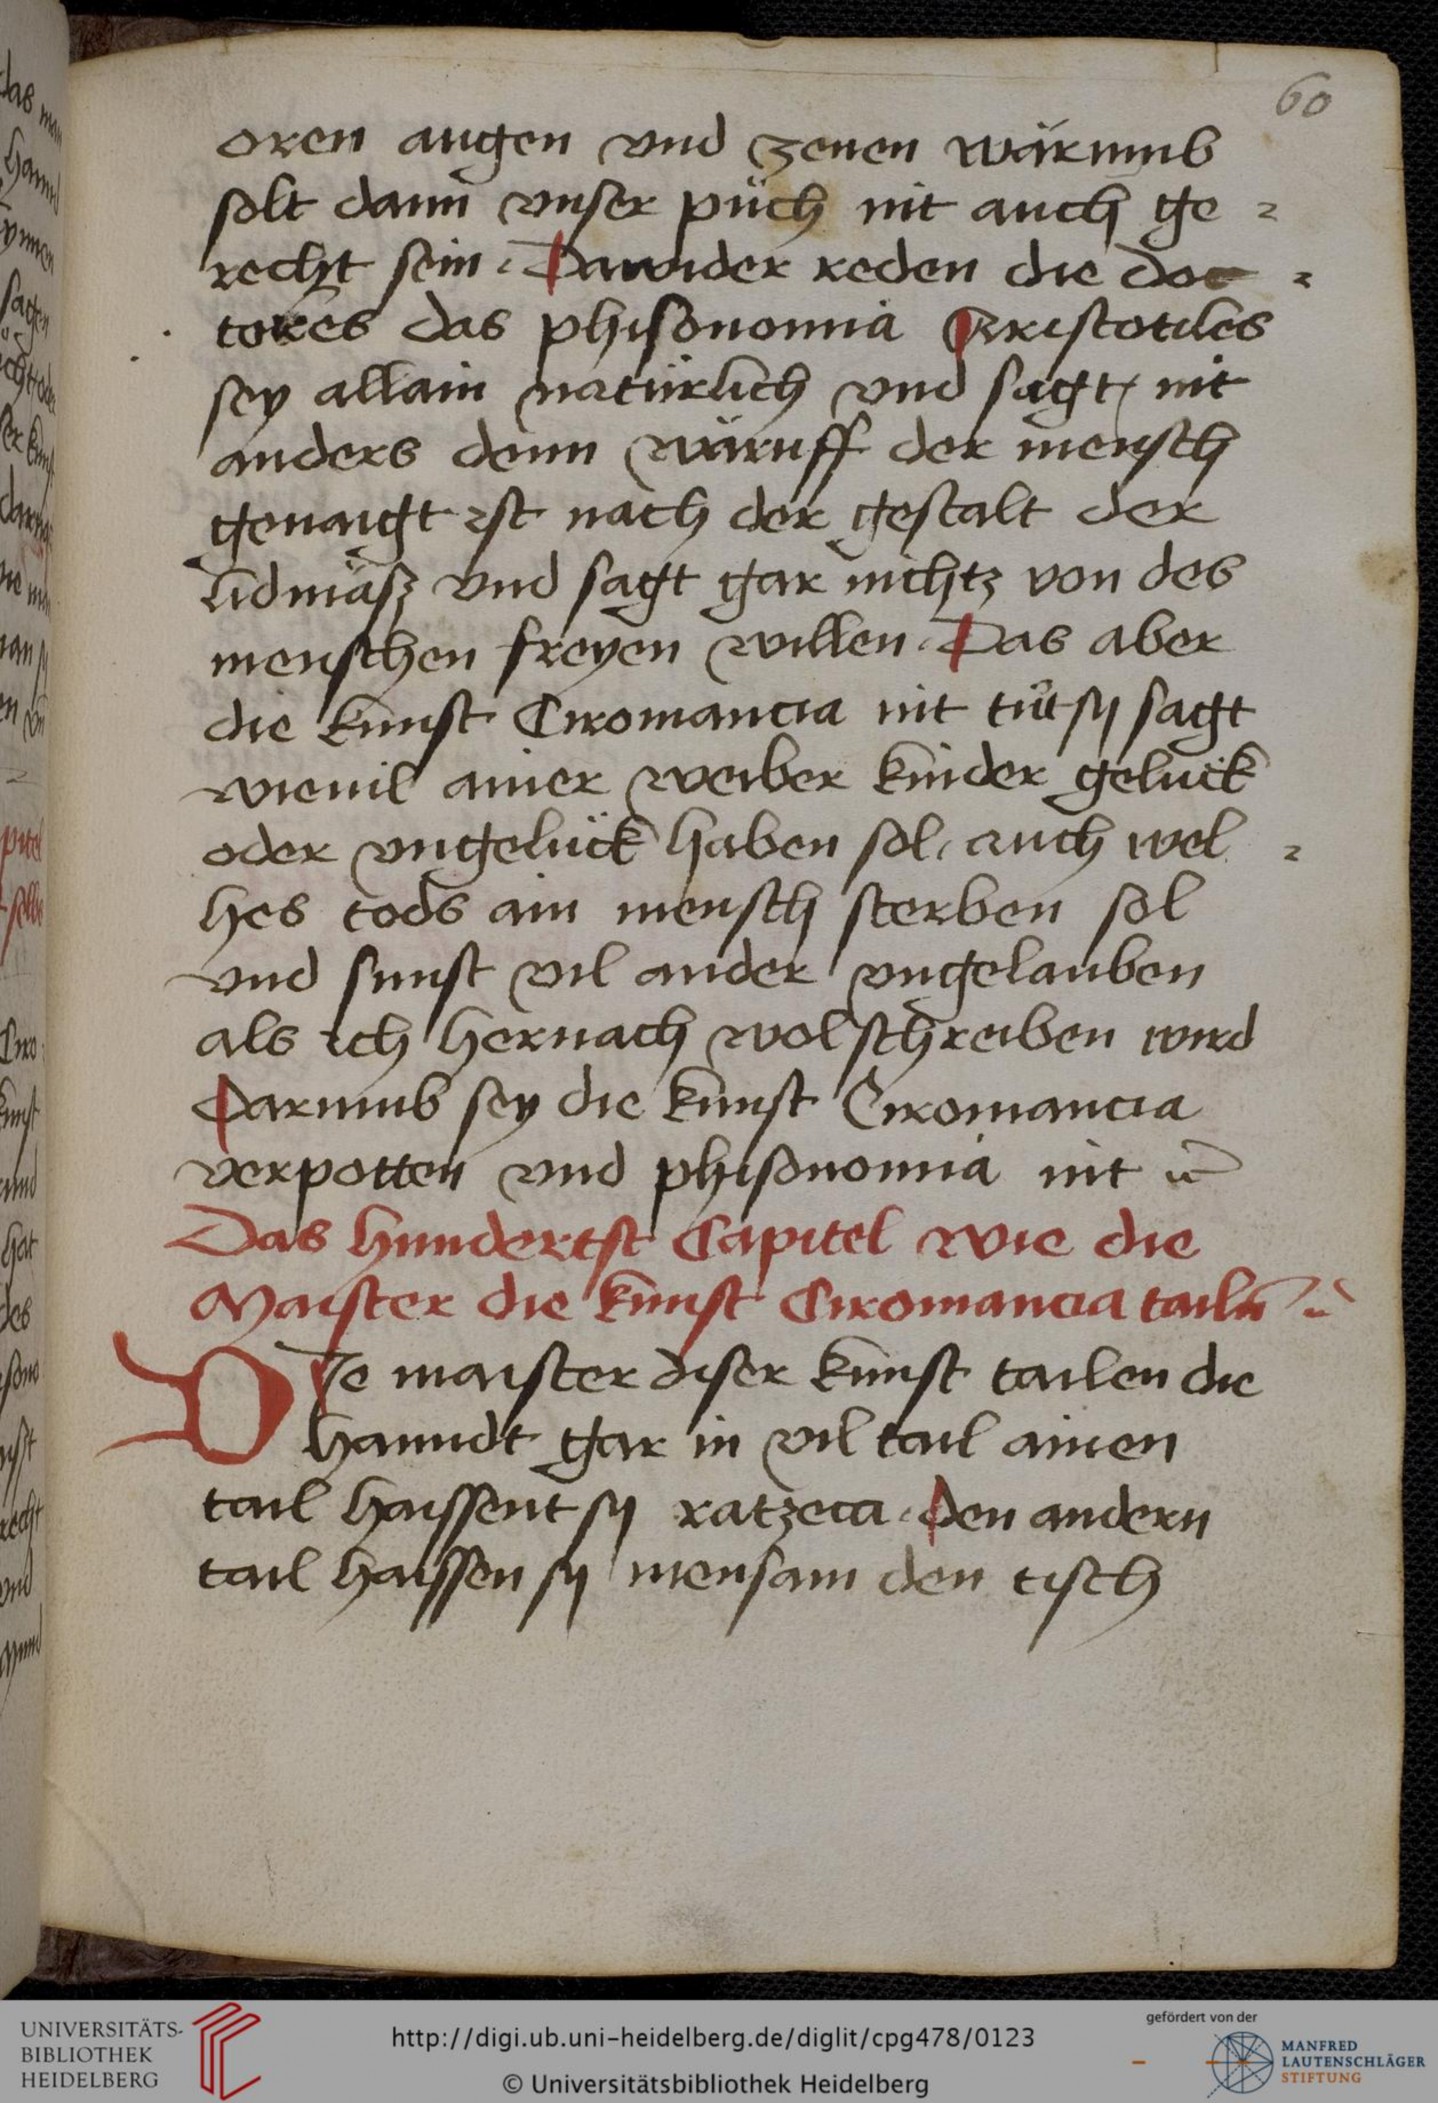 60
oren augen vnd zenen wärumb
solt dann vnser püch nit auch ge=
recht sein. Dawider reden die doc=
tores das phisonomia Aristotiles
sey allain natürlich vnd sagt, nit
anders denn wäruff der mensch
genaigt ist nach der gestalt der
lidmäsz vnd sagt gar nichtz von des
menschen freyen willen. Das aber
die kunst Ciromancia nit tůt sy sagt
wieuil ainer weiber kinder gelück
oder vngelück haben sol, auch wel=
hes tods ain mensch sterben sol
vnd sunst vil ander vngelauben
als ich hernach wol schreiben wird
Darumb sey die kunst Ciromancia
verpotten vnd phisonomia nit
Das hundertst Capitel wie die
Maister die kunst Ciromancia tailn
DIe maister diser kunst tailen die
hanndt gar in vil tail ainen
tail haissent sy ratzeta. den andern
tail haissen sy mensam den tisch
UNIVERSITÄTS-
BIBLIOTHEK
HEIDELBERG
http://digi.ub.uni-heidelberg.de/diglit/cpg478/0123
© Universitätsbibliothek Heidelberg
gefördert von der
MANFRED
LAUTENSCHLÄGER
STIFTUNG